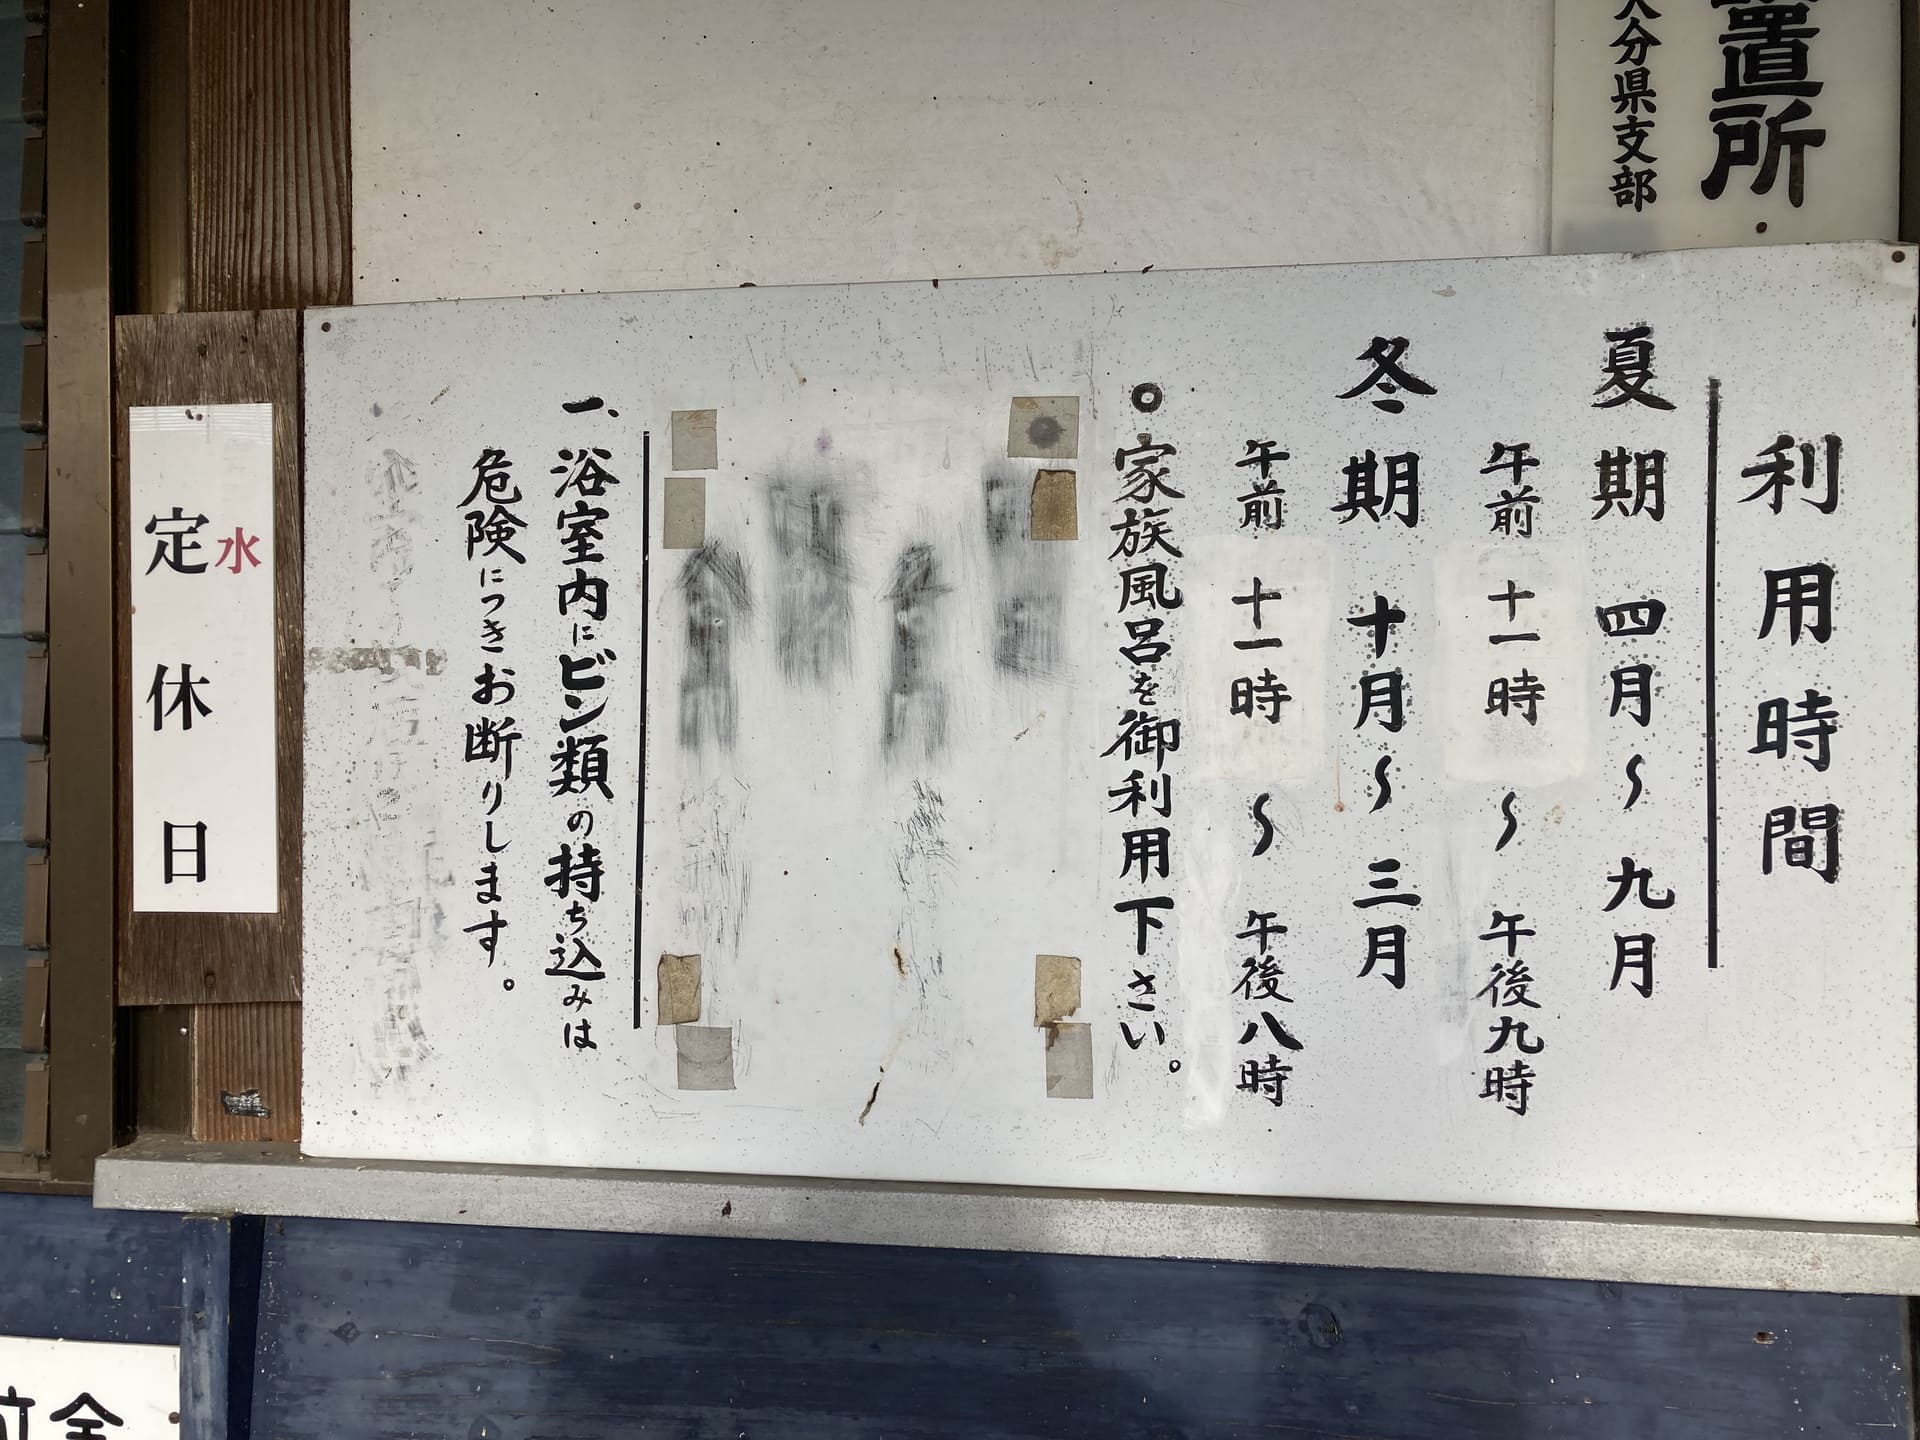 置所
大分県支部
利用時間
夏期 四月～九月
午前 十一時 ～ 午後九時
冬期 十月～三月
午前 十一時 ～ 午後八時
○家族風呂を御利用下さい。
一、浴室内にビン類の持ち込みは
危険につきお断りします。
水
定休日
全